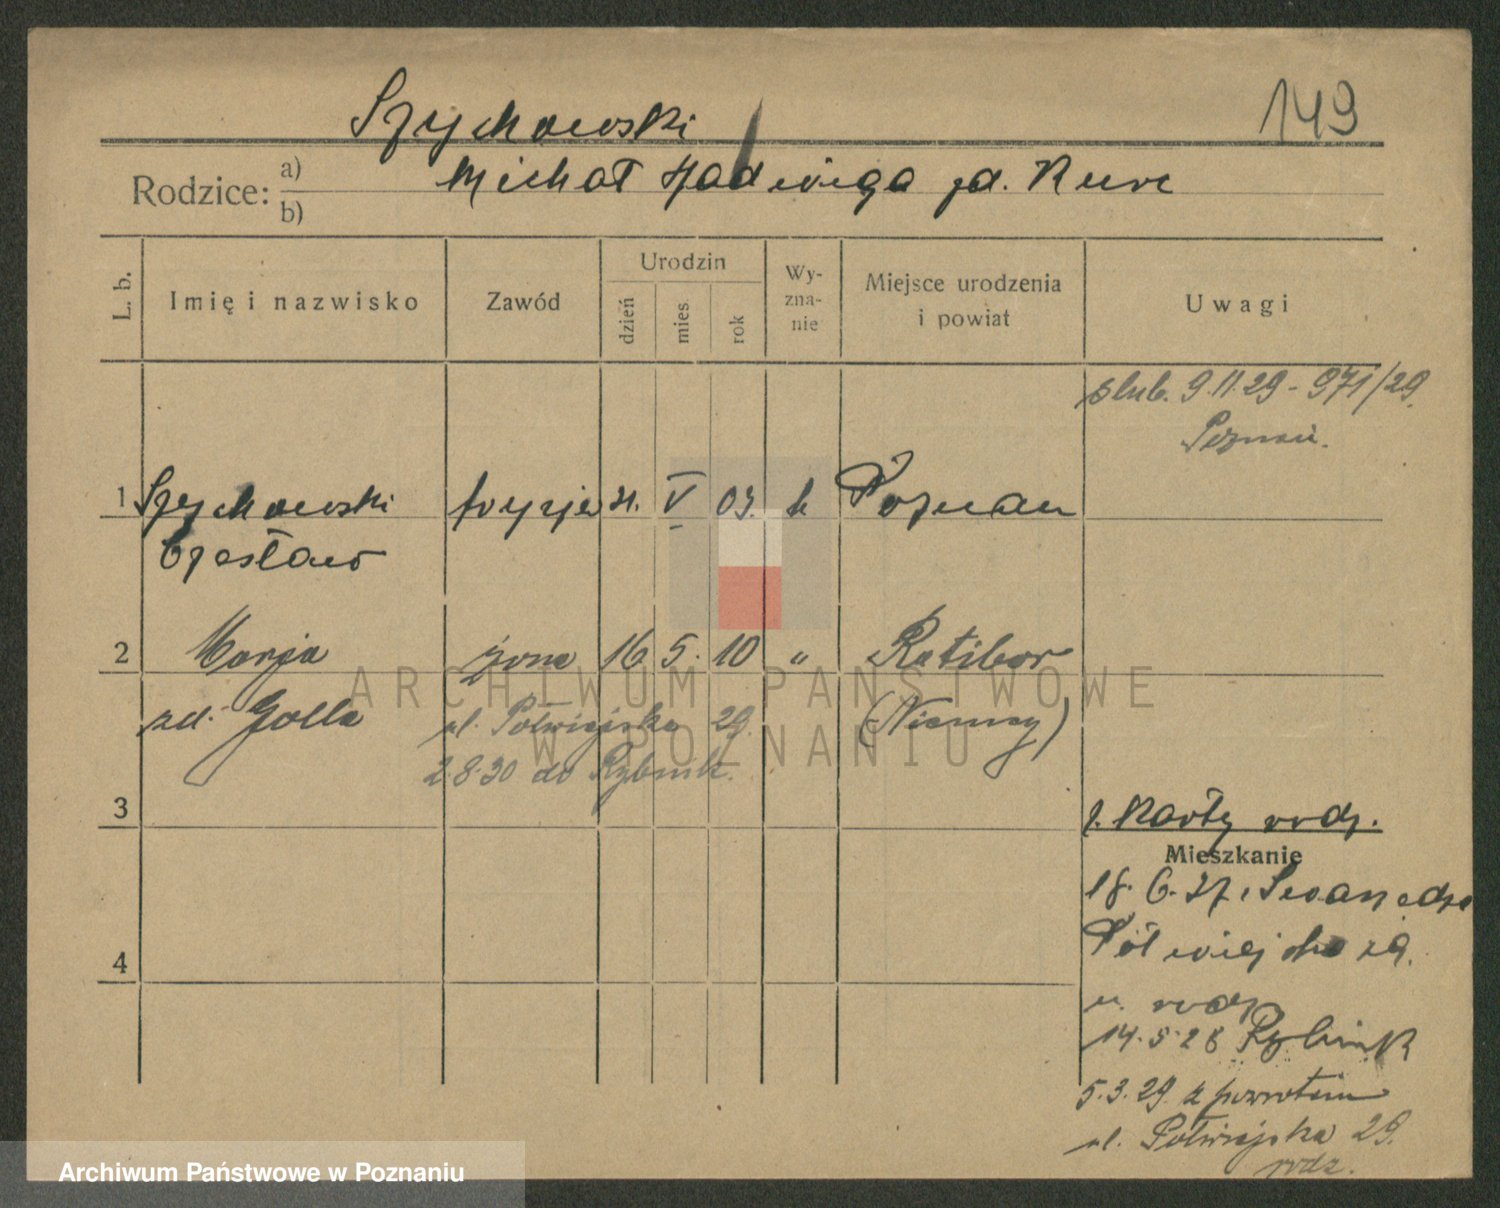 149
Szychowski
Rodzice: a) Michał Jadwiga zd. Kurc
b)
L. b. Imię i nazwisko Zawód Urodzin dzień mies. rok Wy-zna-nie Miejsce urodzenia i powiat Uwagi
ślub. 9.11.29 - 971/29.
Poznań.
1 Szychowski fryzjer 21. V 03. k Poznań
Czesław
2 Marja żona 16 5. 10 " Ratibor
zd. Golla ul. Półwiejska 29. (Niemcy)
2.8.30 do Rybnik.
3 z. Karty rodz.
Mieszkanie
18. 6. 27.
Półwiejska 29.
4
u. rodz.
14.5.28 Rybnik
5.3.29 z powrotem
ul. Półwiejska 29.
rodz.
ARCHIWUM PAŃSTWOWE
W POZNANIU
Archiwum Państwowe w Poznaniu